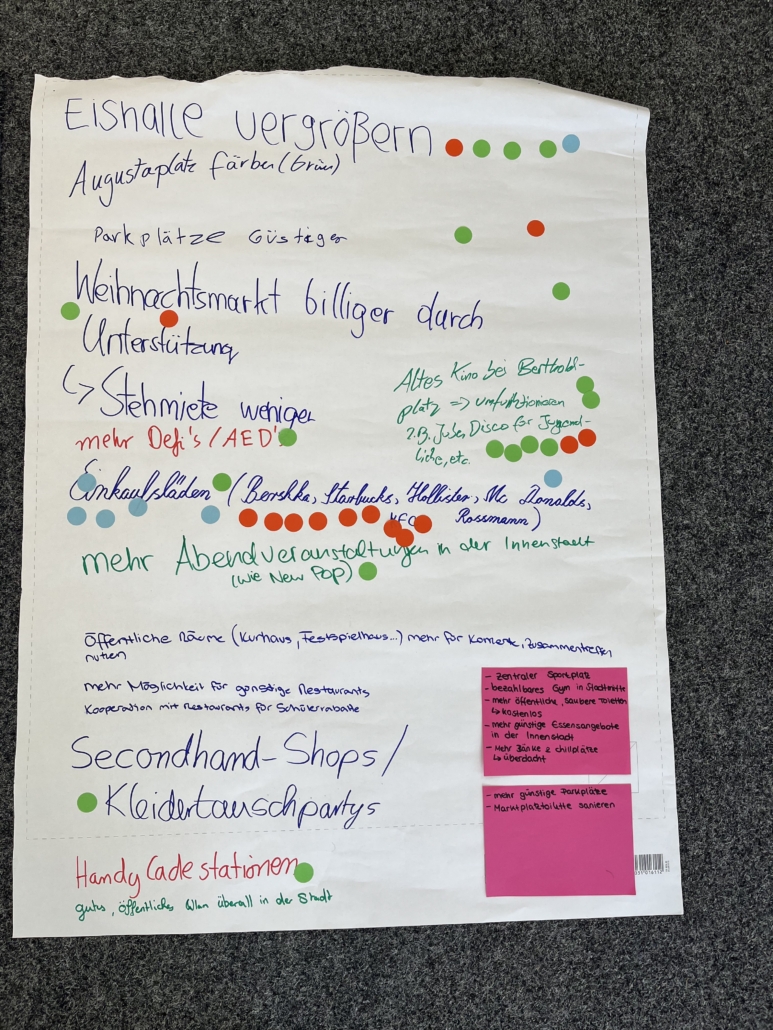 Eishalle vergrößern
Augustaplatz färben (Grün)
Parkplätze Güstiger
Weihnachtsmarkt billiger durch
Unterstützung
↳ Stehmiete weniger
mehr Defi's / AED's
Altes Kino bei Berthold-
platz => umfunktionieren
z.B. Juben Disco für Jugend-
liche, etc.
Einkaufsläden (Bershka, Starbucks, Hollister, Mc Donalds,
KFC Rossmann)
mehr Abendveranstaltungen in der Innenstadt
(wie New Pop)
Öffentliche Räume (Kurhaus, Festspielhaus...) mehr für Konzerte, Zusammentreffen
nutzen
mehr Möglichkeit für günstige Restaurants
Kooperation mit Restaurants für Schülerrabatte
Secondhand-Shops/
Kleidertauschpartys
Handy Ladestationen
gutes, öffentliches Wlan überall in der Stadt
- Zentraler Sportplatz
- bezahlbares Gym in Stadtmitte
- mehr öffentliche, saubere Toiletten
↳ kostenlos
- mehr günstige Essensangebote
in der Innenstadt
- Mehr Bänke & chillplätze
↳ überdacht
- mehr günstige Parkplätze
- Marktplatztoilette sanieren